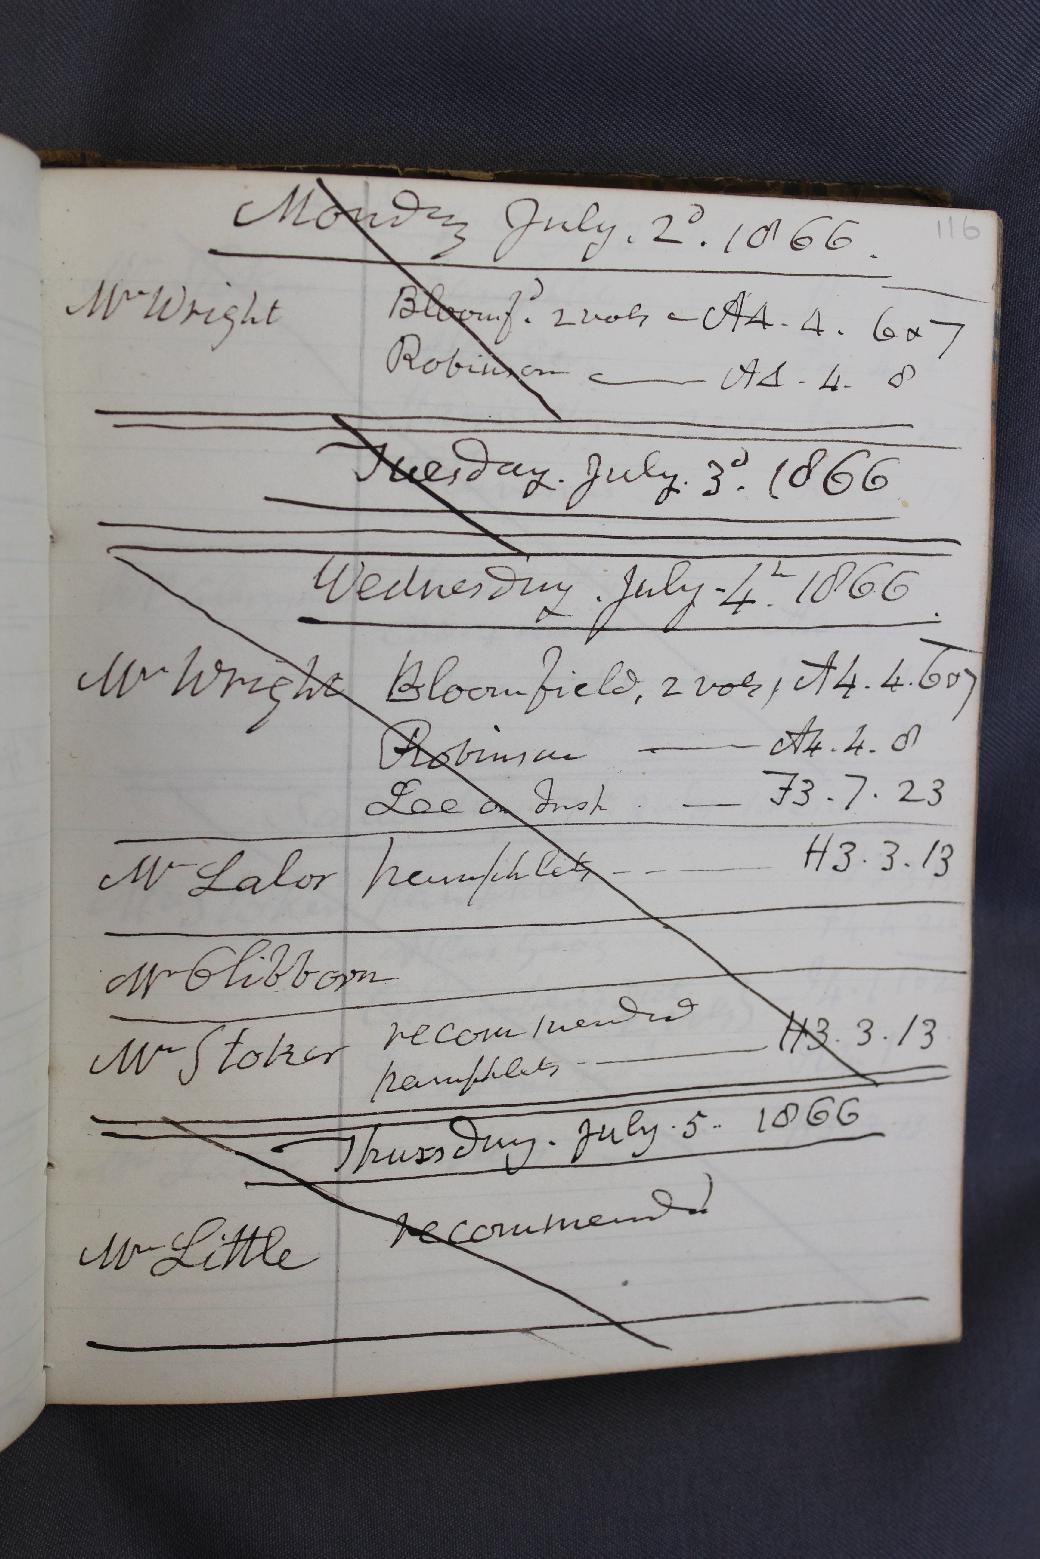 116
Monday July. 2d. 1866.
Mr Wright Bloomfd. 2 vols - A4. 4. 6 & 7
Robinson — A4. 4. 8
Tuesday. July. 3d. 1866
Wednesday. July. 4th 1866.
Mr Wright Bloomfield, 2 vols, A4. 4. 6 & 7
Robinson — A4. 4. 8
Lee on — F3. 7. 23
Mr Lalor pamphlets - - — H3. 3. 13
Mr Clibborn
Mr Stoker recommended
pamphlets — H3. 3. 13
Thursday. July. 5. 1866
Mr Little recommended